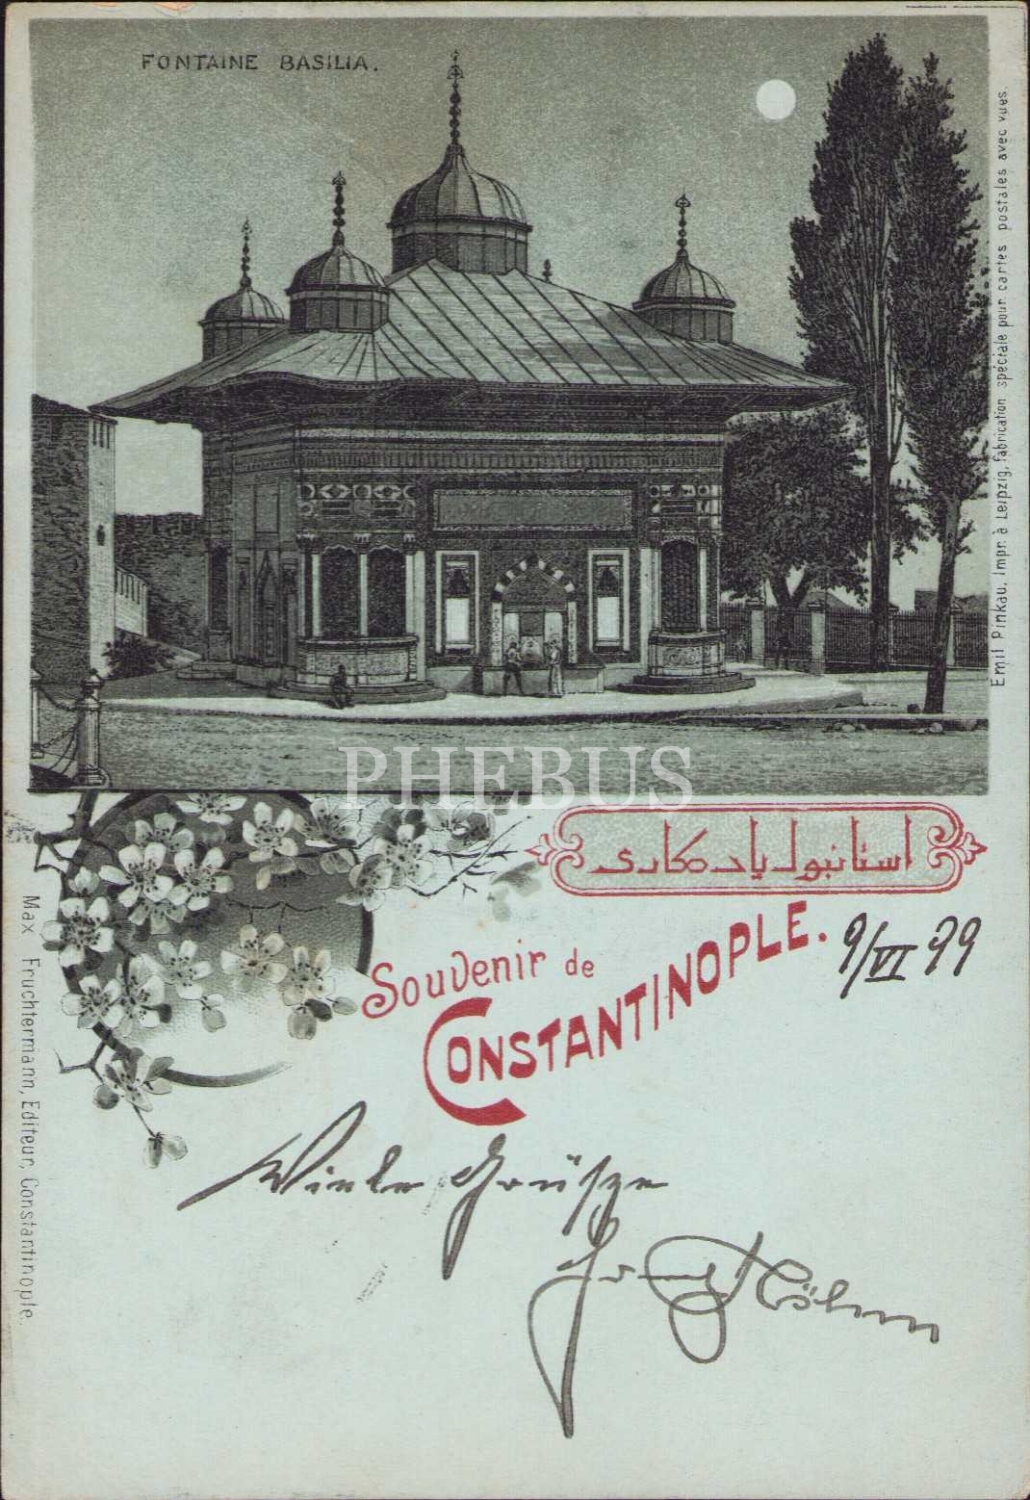 FONTAINE BASILIA.
Emil Pinkau, Impr. à Leipzig, Fabrication spéciale pour cartes postales avec vues.
PHEBUS
استانبول يادكارى
Souvenir de
CONSTANTINOPLE.
9/VI 99
Max Fruchtermann, Editeur, Constantinople.
Grüsze